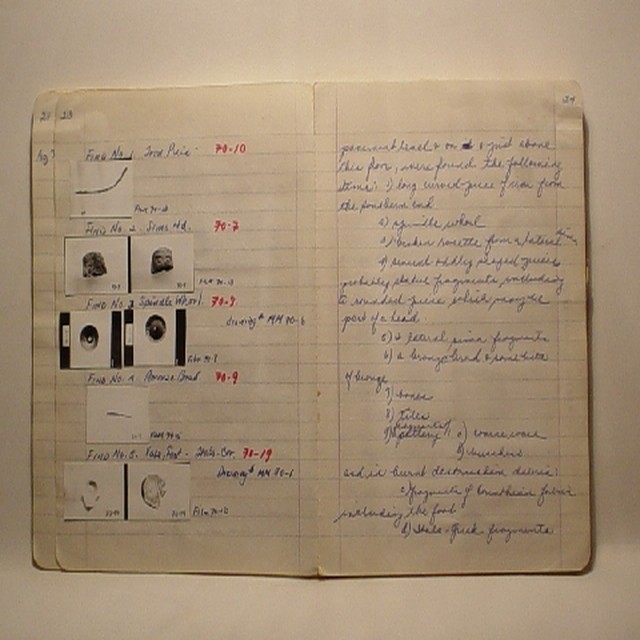 21 23
Aug 7
Find No. 1. Iron Piece. 70-10
Film 70-10
Find No. 2. Sima Hd. 70-7
Film 70-10
Find No. 3 Spindle Whorl. 70-8
drawing # MM 70-6
Film 70-8
Find No. 4. Bronze Bead. 70-9
Find No. 5. Vase, Foot - Italo-Cor. 70-19
drawing # MM 70-6
Film 70-10
24
pavement level & on & just above
this floor, were found the following
items: 1) long curved piece of iron from
the southern end
2) spindle whorl
3) broken rosette from a lateral sima
4) several oddly shaped pieces
probably statue fragments including
a rounded piece which may be
part of a head.
5) lateral sima fragments
6) a bronze bead & some bits
of bronze
7) bones
8) tiles
9) fragments of pottery a) coarse ware
b) bucchero
and in burnt destruction debris:
c) fragments of Corinthian fabric
including the foot
d) Italo-Greek fragments